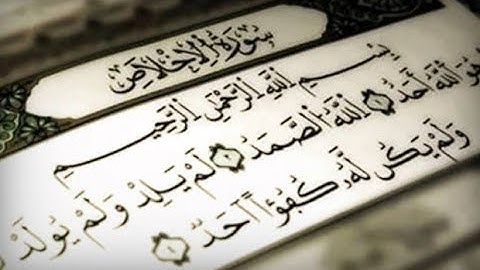 سُورَةُ الْإِخْلَاصِ
بِسْمِ اللَّهِ الرَّحْمَٰنِ الرَّحِيمِ
هُوَ اللَّهُ أَحَدٌ ۝ اللَّهُ الصَّمَدُ ۝ لَمْ يَلِدْ وَلَمْ يُولَدْ
وَلَمْ يَكُن لَّهُ كُفُوًا أَحَدٌ ۝